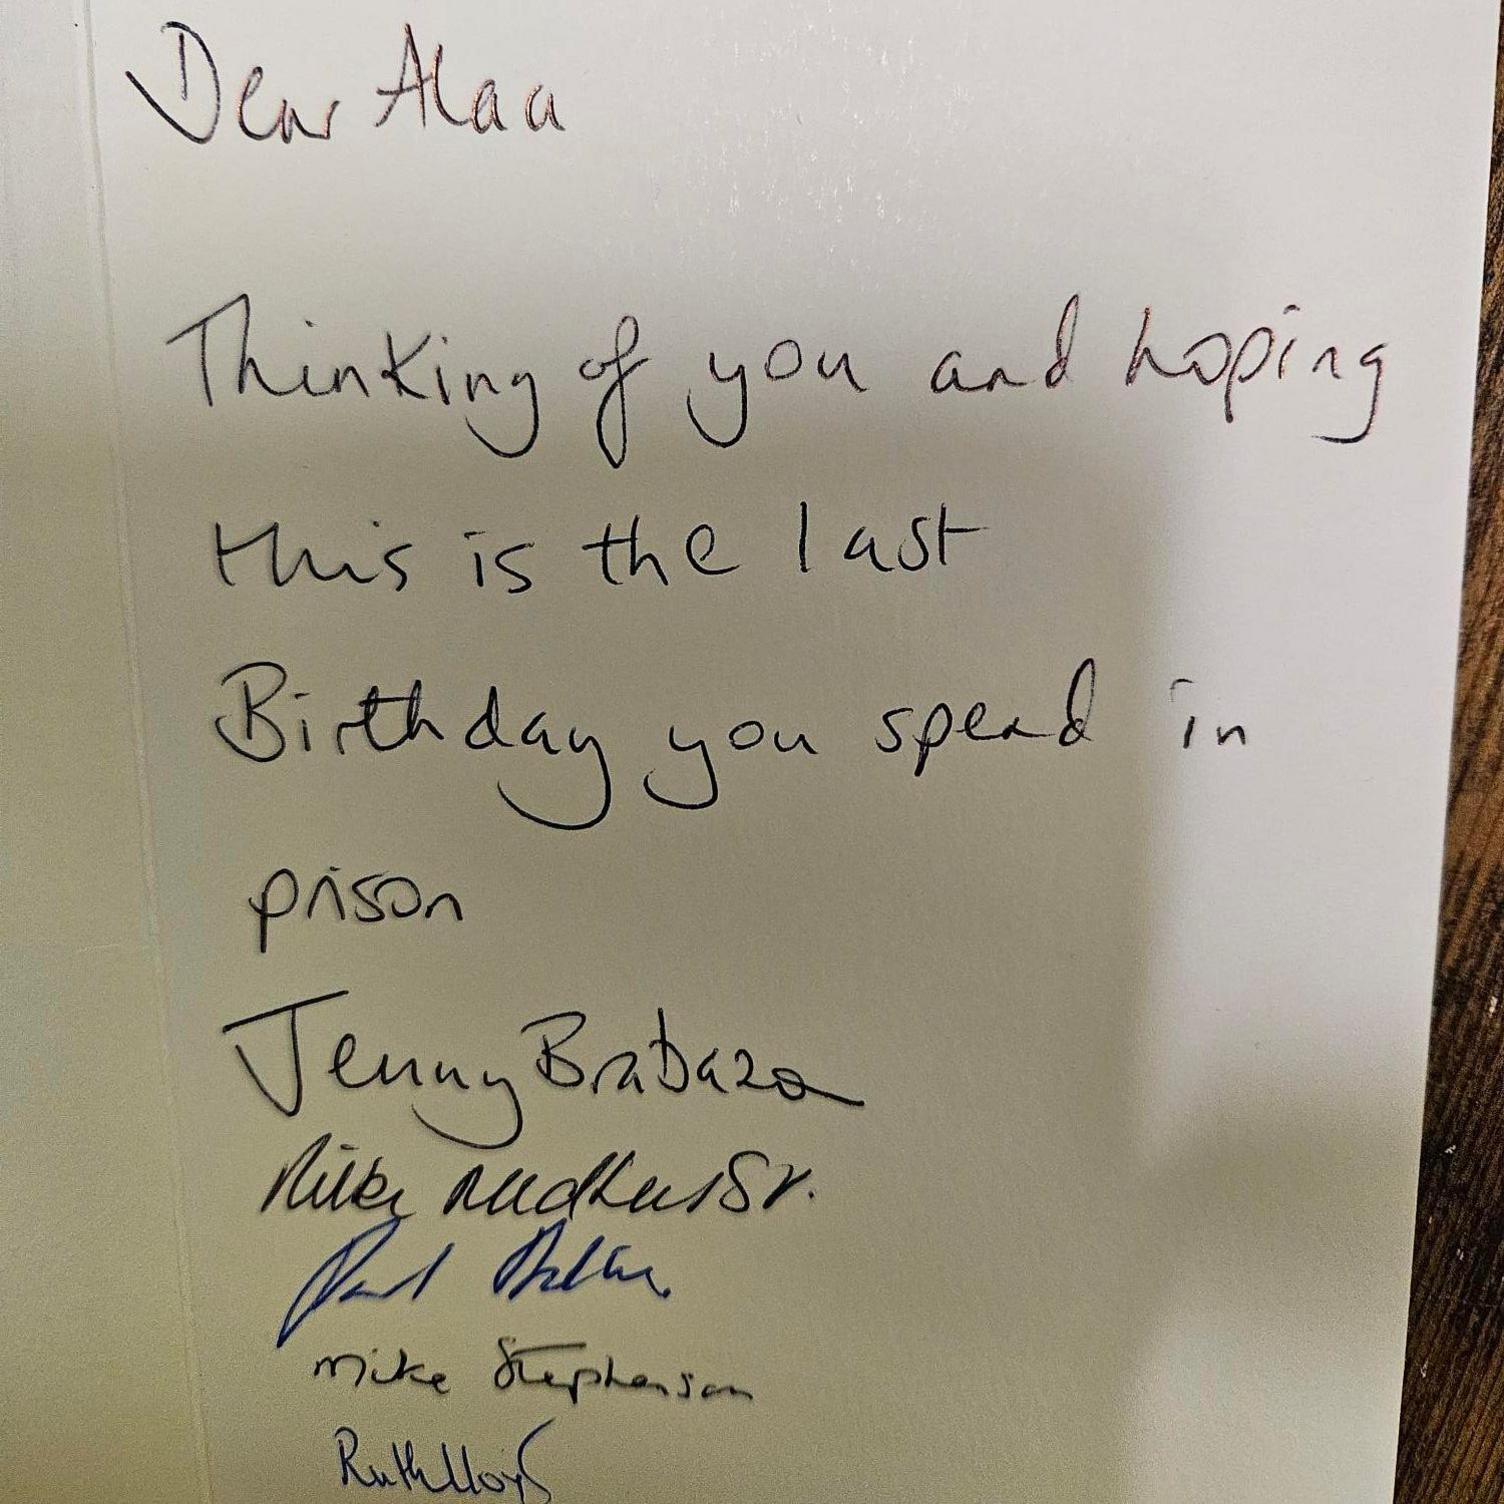 Dear Alaa
Thinking of you and hoping
this is the last
Birthday you spend in
prison
Jenny Brabazon
Mike
Paul
Mike Stephenson
Ruth Lloyd